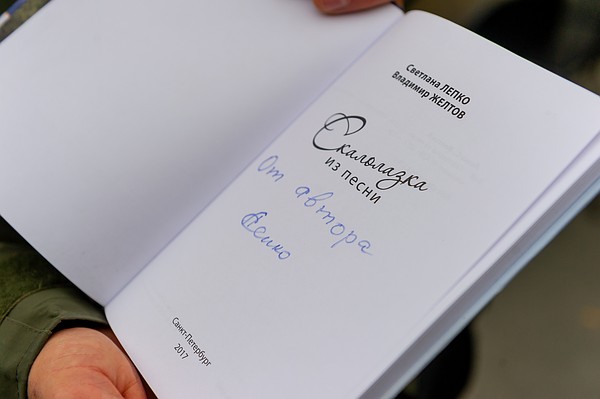 Светлана ЛЕПКО
Владимир ЖЕЛТОВ
Скалолазка
из песни
От автора
Лепко
Санкт-Петербург
2017